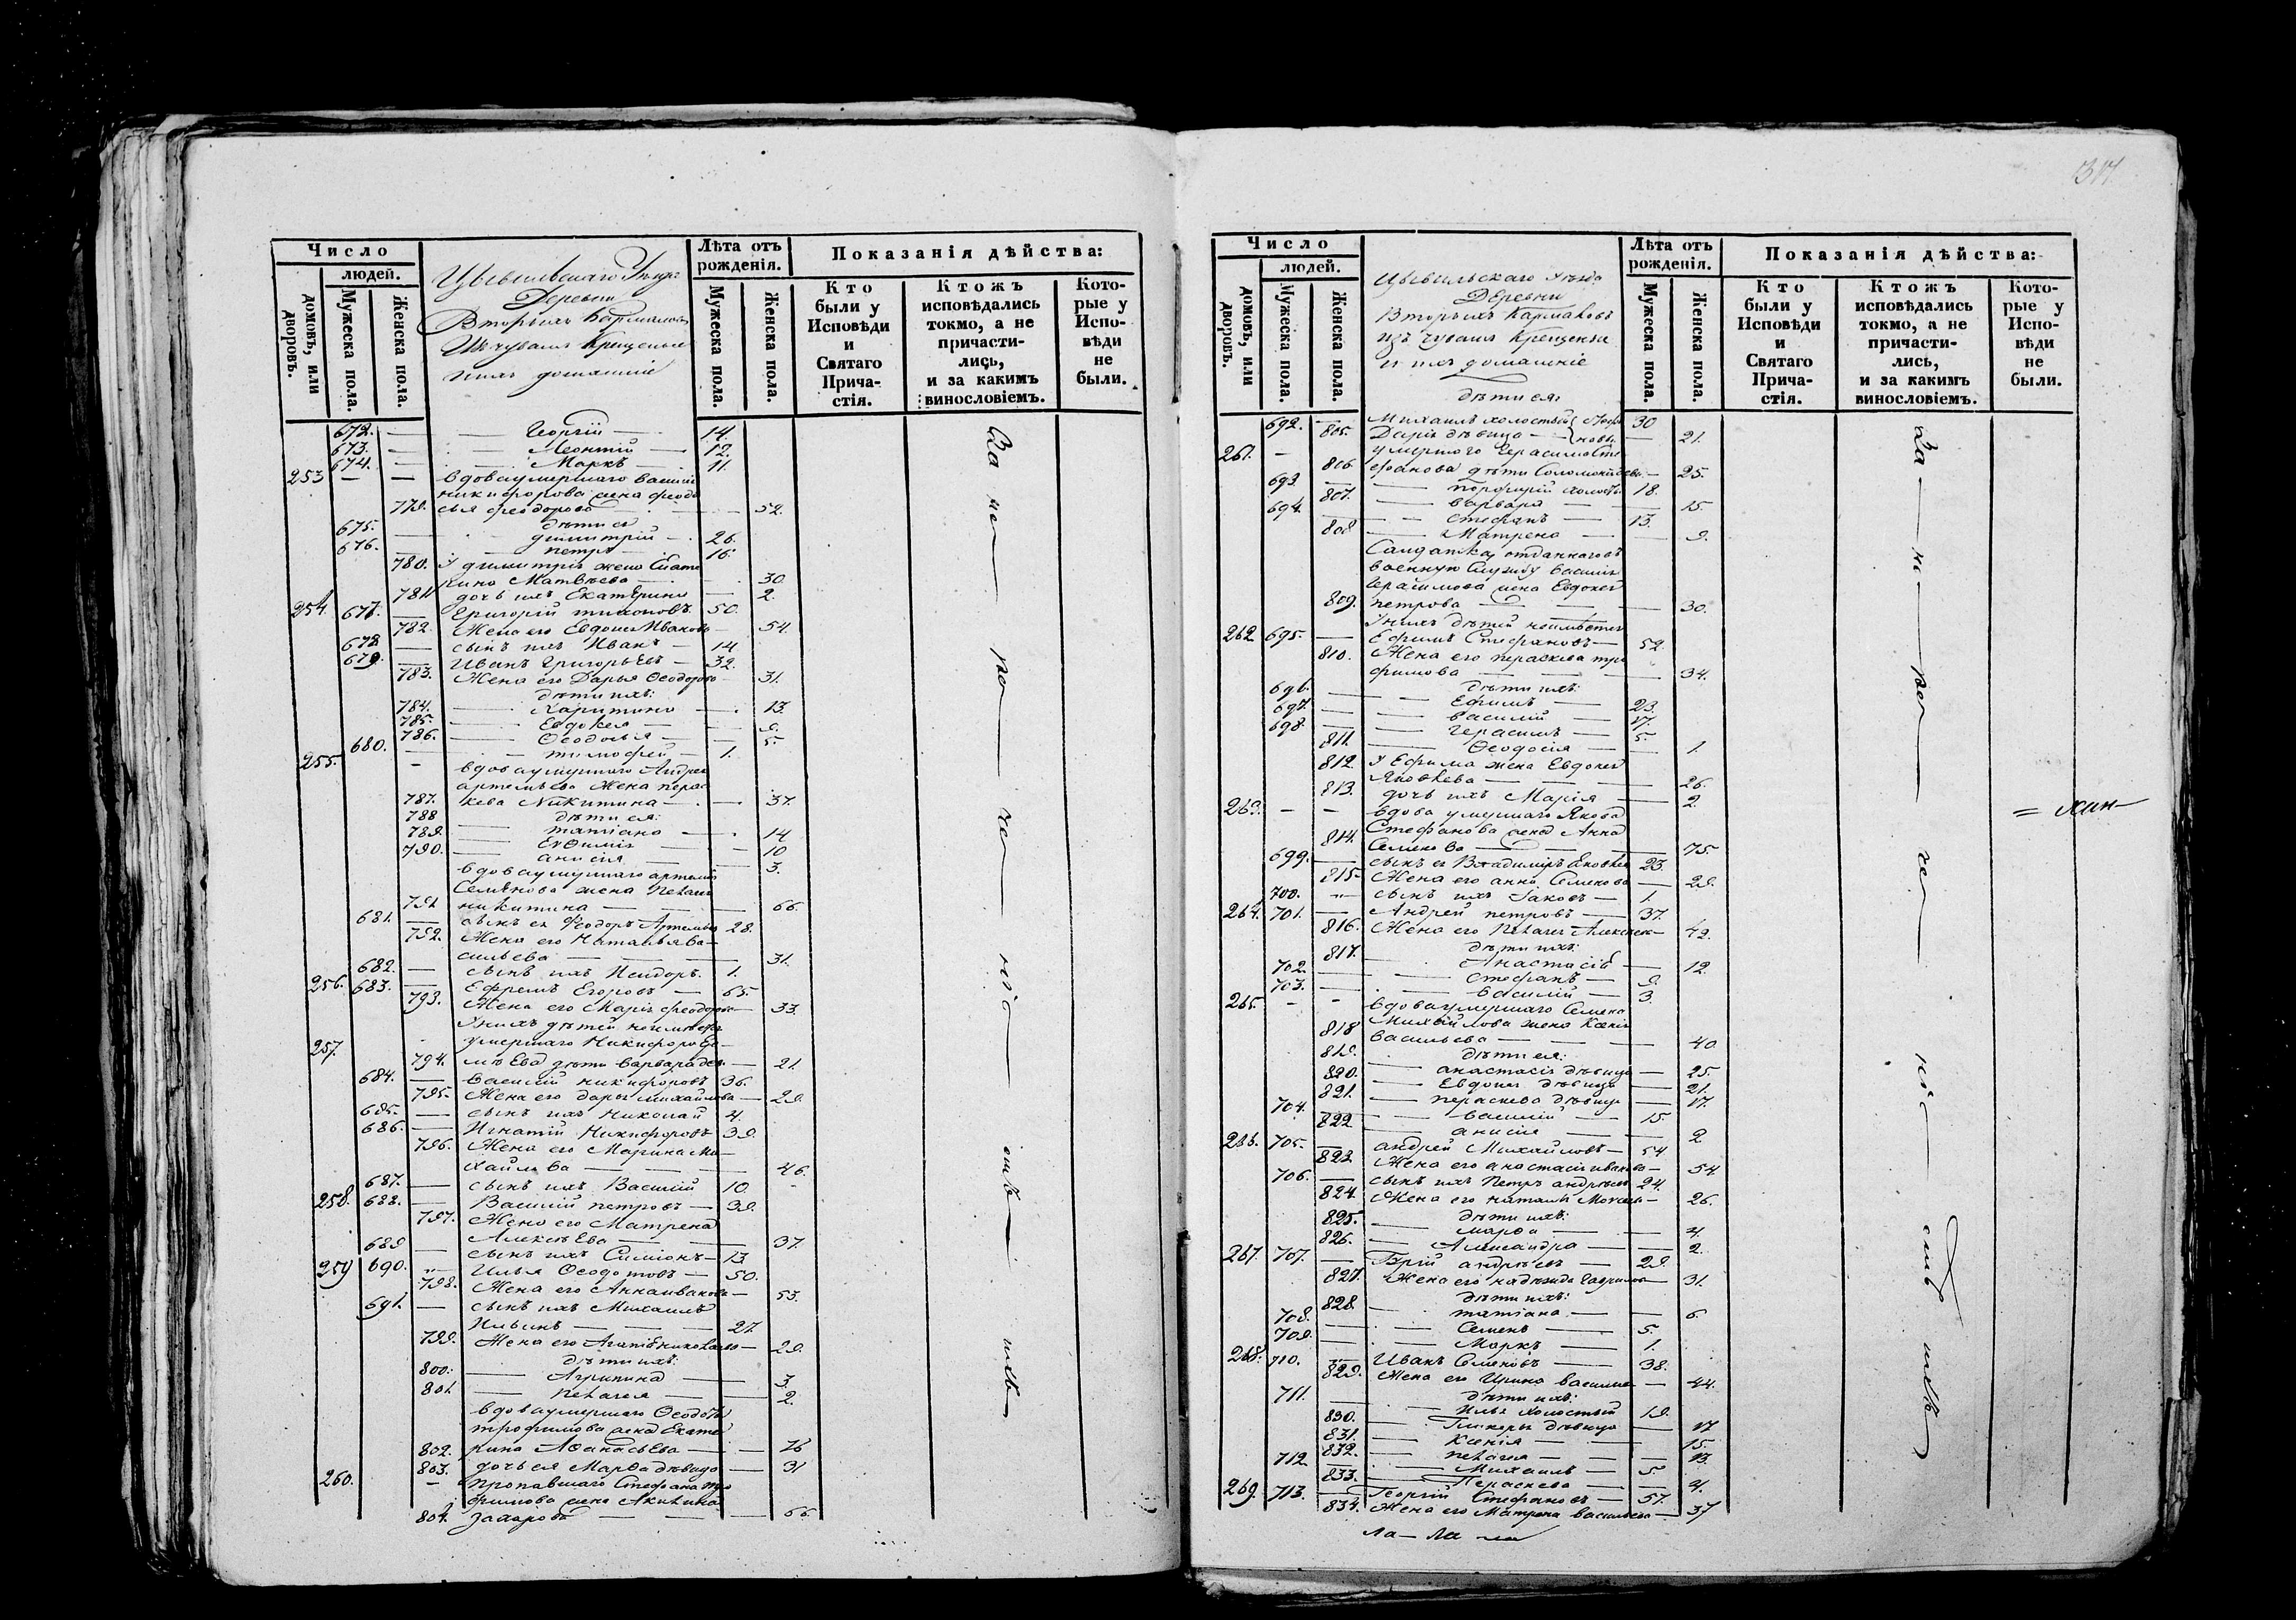 Число
людей.
домовъ, или дворовъ.
Мужеска пола.
Женска пола.
Деревни
Лѣта отъ рожденія.
Мужеска пола.
Женска пола.
Показанія дѣйства:
Кто были у Исповѣди и Святаго Прича-стія.
Ктожъ исповѣдались токмо, а не причасти-лись, и за какимъ винословіемъ.
Кото-рые у Испо-вѣди не были.
672. Георгій 14.
673. Леонтій 12.
674. Маркъ 11.
253 вдова умершаго Василія
никифорова жена феодо
779. сья феодорова 52.
дѣти ея
675. димитрій 26.
676. петръ 16.
780. У димитрія жена Екате
рина Матвѣева 30.
781 дочь ихъ Екатерина 2.
254. 677. Григорій тихоновъ 50.
782. Жена его Евдокея Иванова 54.
678 сынъ ихъ Иванъ 14
679. Иванъ Григорьевъ 32.
783. Жена его Дарья Ѳеодорова 31.
дѣти ихъ:
784. Харитина 13.
785. Евдокея 9.
786. Ѳеодосья 5.
680. тимофей 1.
255. вдова умершаго Андрея
артемьева Жена перас
787. кева Никитина 37.
788 дѣти ея:
789. татіана 14
790. Евфимія 10
анисія 3.
вдова умершаго артемія
Семенова жена Пелагея
791 никитина 66.
681. сынъ ея Феодоръ Артемьевъ 28.
792. Жена его Наталья Ва-
сильева 31.
682. сынъ ихъ Исидоръ 1.
256. 683. Ефремъ Егоровъ 65.
793. Жена его Марія феодорова 33.
У нихъ дѣтей неимѣется
257. умершаго Никифора Е
794. дѣти Варвара дев. 21.
684. Василій никифоровъ 36.
795. Жена его дарья михайлова 29.
685. сынъ ихъ Николай 4.
686. Игнатій Никифоровъ 39.
796. Жена его Марина Ми-
хайлова 46.
687. сынъ ихъ Василій 10.
258. 688. Василій петровъ 39.
797. Жена его Матрена
Алексѣева 37.
689 сынъ ихъ Симіонъ 13.
259 690. Илья Ѳеодотовъ 50.
798. Жена его Анна иванова 53.
691. сынъ ихъ Михаилъ
Ильинъ 27.
799. Жена его Агатія николаева 29.
дѣти ихъ:
800. Агрипина 3.
801 Пелагея 2.
вдова умершаго Ѳеодота
трофимова жена Екате
802. рина Аѳанасьева 76
803. дочь ея Марѳа дѣвица 31
260. пропавшаго Стефана тро
фимова жена Акилина
804. Захарова 66.
За не
не
ніе
ихъ
317
Число
людей.
домовъ, или дворовъ.
Мужеска пола.
Женска пола.
Цывильскаго уѣзда
Деревни
Вторыхъ Кармаловъ
изъ чувашъ Крещеныи
и ихъ домашніе
дѣти ея:
Лѣта отъ рожденія.
Мужеска пола.
Женска пола.
Показанія дѣйства:
Кто были у Исповѣди и Святаго Прича-стія.
Ктожъ исповѣдались токмо, а не причасти-лись, и за какимъ винословіемъ.
Кото-рые у Испо-вѣди не были.
692. Михаилъ холостый 30
805. Дарія дѣвица 21.
261. умершаго Герасима Сте
806. фанова дѣти Соломонида 25.
693 порфирій холостъ 18.
807. варвара 15.
694 стефанъ 13.
808 Матрена 9.
Салдатка, отданнаго въ
военную Службу Василія
Герасимова жена Евдокея
809. петрова 30.
У нихъ дѣтей неимѣется
262 695. Ефимъ Стефановъ 52.
810. Жена его параскева тро
фимова 34.
дѣти ихъ:
696. Ефимъ 23.
697. василій 17.
698. герасимъ 5.
811. Ѳеодосія 1.
812. У Ефима жена Евдокея
Яковлева 26.
813. дочь ихъ Марія 2.
263. вдова умершаго Якова
Стефанова жена Анна
814. Семенова 75.
699. сынъ ея Владиміръ Яковлевъ 23.
815. Жена его анна Семенова 29.
700. сынъ ихъ Іаковъ 1.
264. 701. Андрей петровъ 37.
816. Жена его Пелагея Алексѣева 42.
дѣти ихъ:
817. Анастасія 12.
702 стефанъ 9.
703. василій 3.
265. вдова умершаго Семена
Михайлова жена Ксенія
818 васильева 40.
дѣти ея:
819. анастасія дѣвица 25.
820. Евдокея дѣвица 21.
821. параскева дѣвица 17.
704. василій 15.
822 анисія 2.
266. 705. андрей Михайловъ 54
823 Жена его анастасія иванова 54.
706. сынъ ихъ Петръ андрѣевъ 24.
824. Жена его наталья 26.
дѣти ихъ:
825. марѳа 4.
826. Александра 2.
267. 707. андрѣевъ 29.
827. Жена его надежда Гаврилова 31.
дѣти ихъ:
828. татіана 6.
708. Семенъ 5.
709. Маркъ 1.
268. 710. Иванъ Семеновъ 38.
829. Жена его Ирина васильева 44.
дѣти ихъ:
711. Илья холостый 19.
830. Гликерія дѣвица 17
831. Ксенія 15.
832. пелагея 13.
712 Михаилъ 5.
833. Параскева 4.
269. 713. Георгій Стефановъ 57.
834. Жена его Матрена васильева 37
За не
не
ніе
ихъ